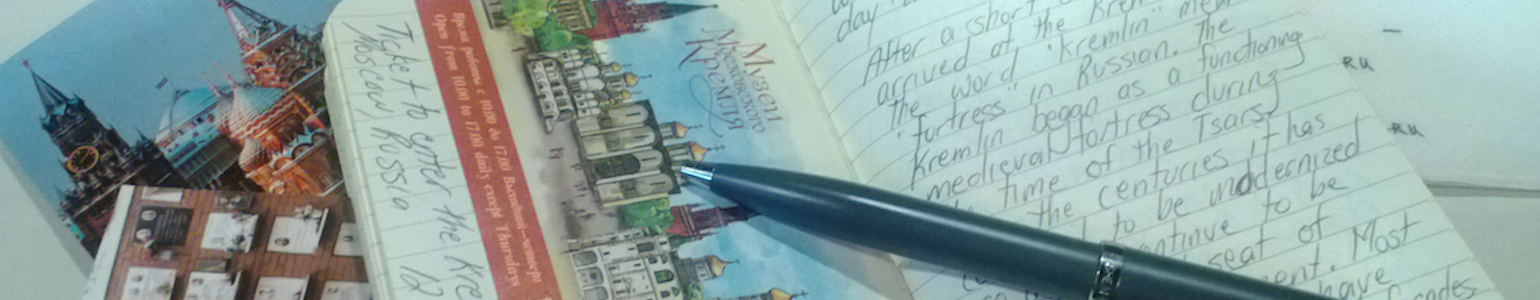 Ticket to enter the Kre
Moscow, Russia 12
Время работы с 10.00 до 17.00 Выходной—четверг
Open from 10.00 to 17.00 daily except Thursdays
Музеи
Московского
Кремля
day
After a short
arrived at the Krem
the word "Kremlin" mea
"fortress" in Russian. The
Kremlin began as a functioning
medieval fortress during
time of the Tsars.
the centuries it has
to be modernized
continue to be
seat of
ment. Most
have
codes
RU
RU